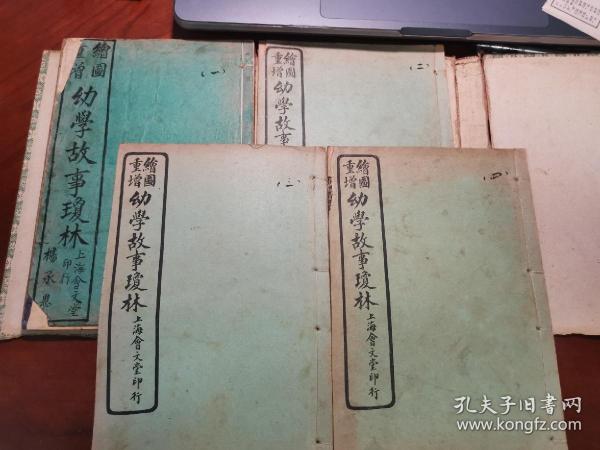 繪圖
重增
幼學故事瓊林
上海會文堂
印行
楊承恩
(一)
繪圖
重增
幼學故事
(二)
繪圖
重增
幼學故事瓊林
上海會文堂印行
(三)
繪圖
重增
幼學故事瓊林
上海會文堂印行
(四)
孔夫子旧书网
www.kongfz.com